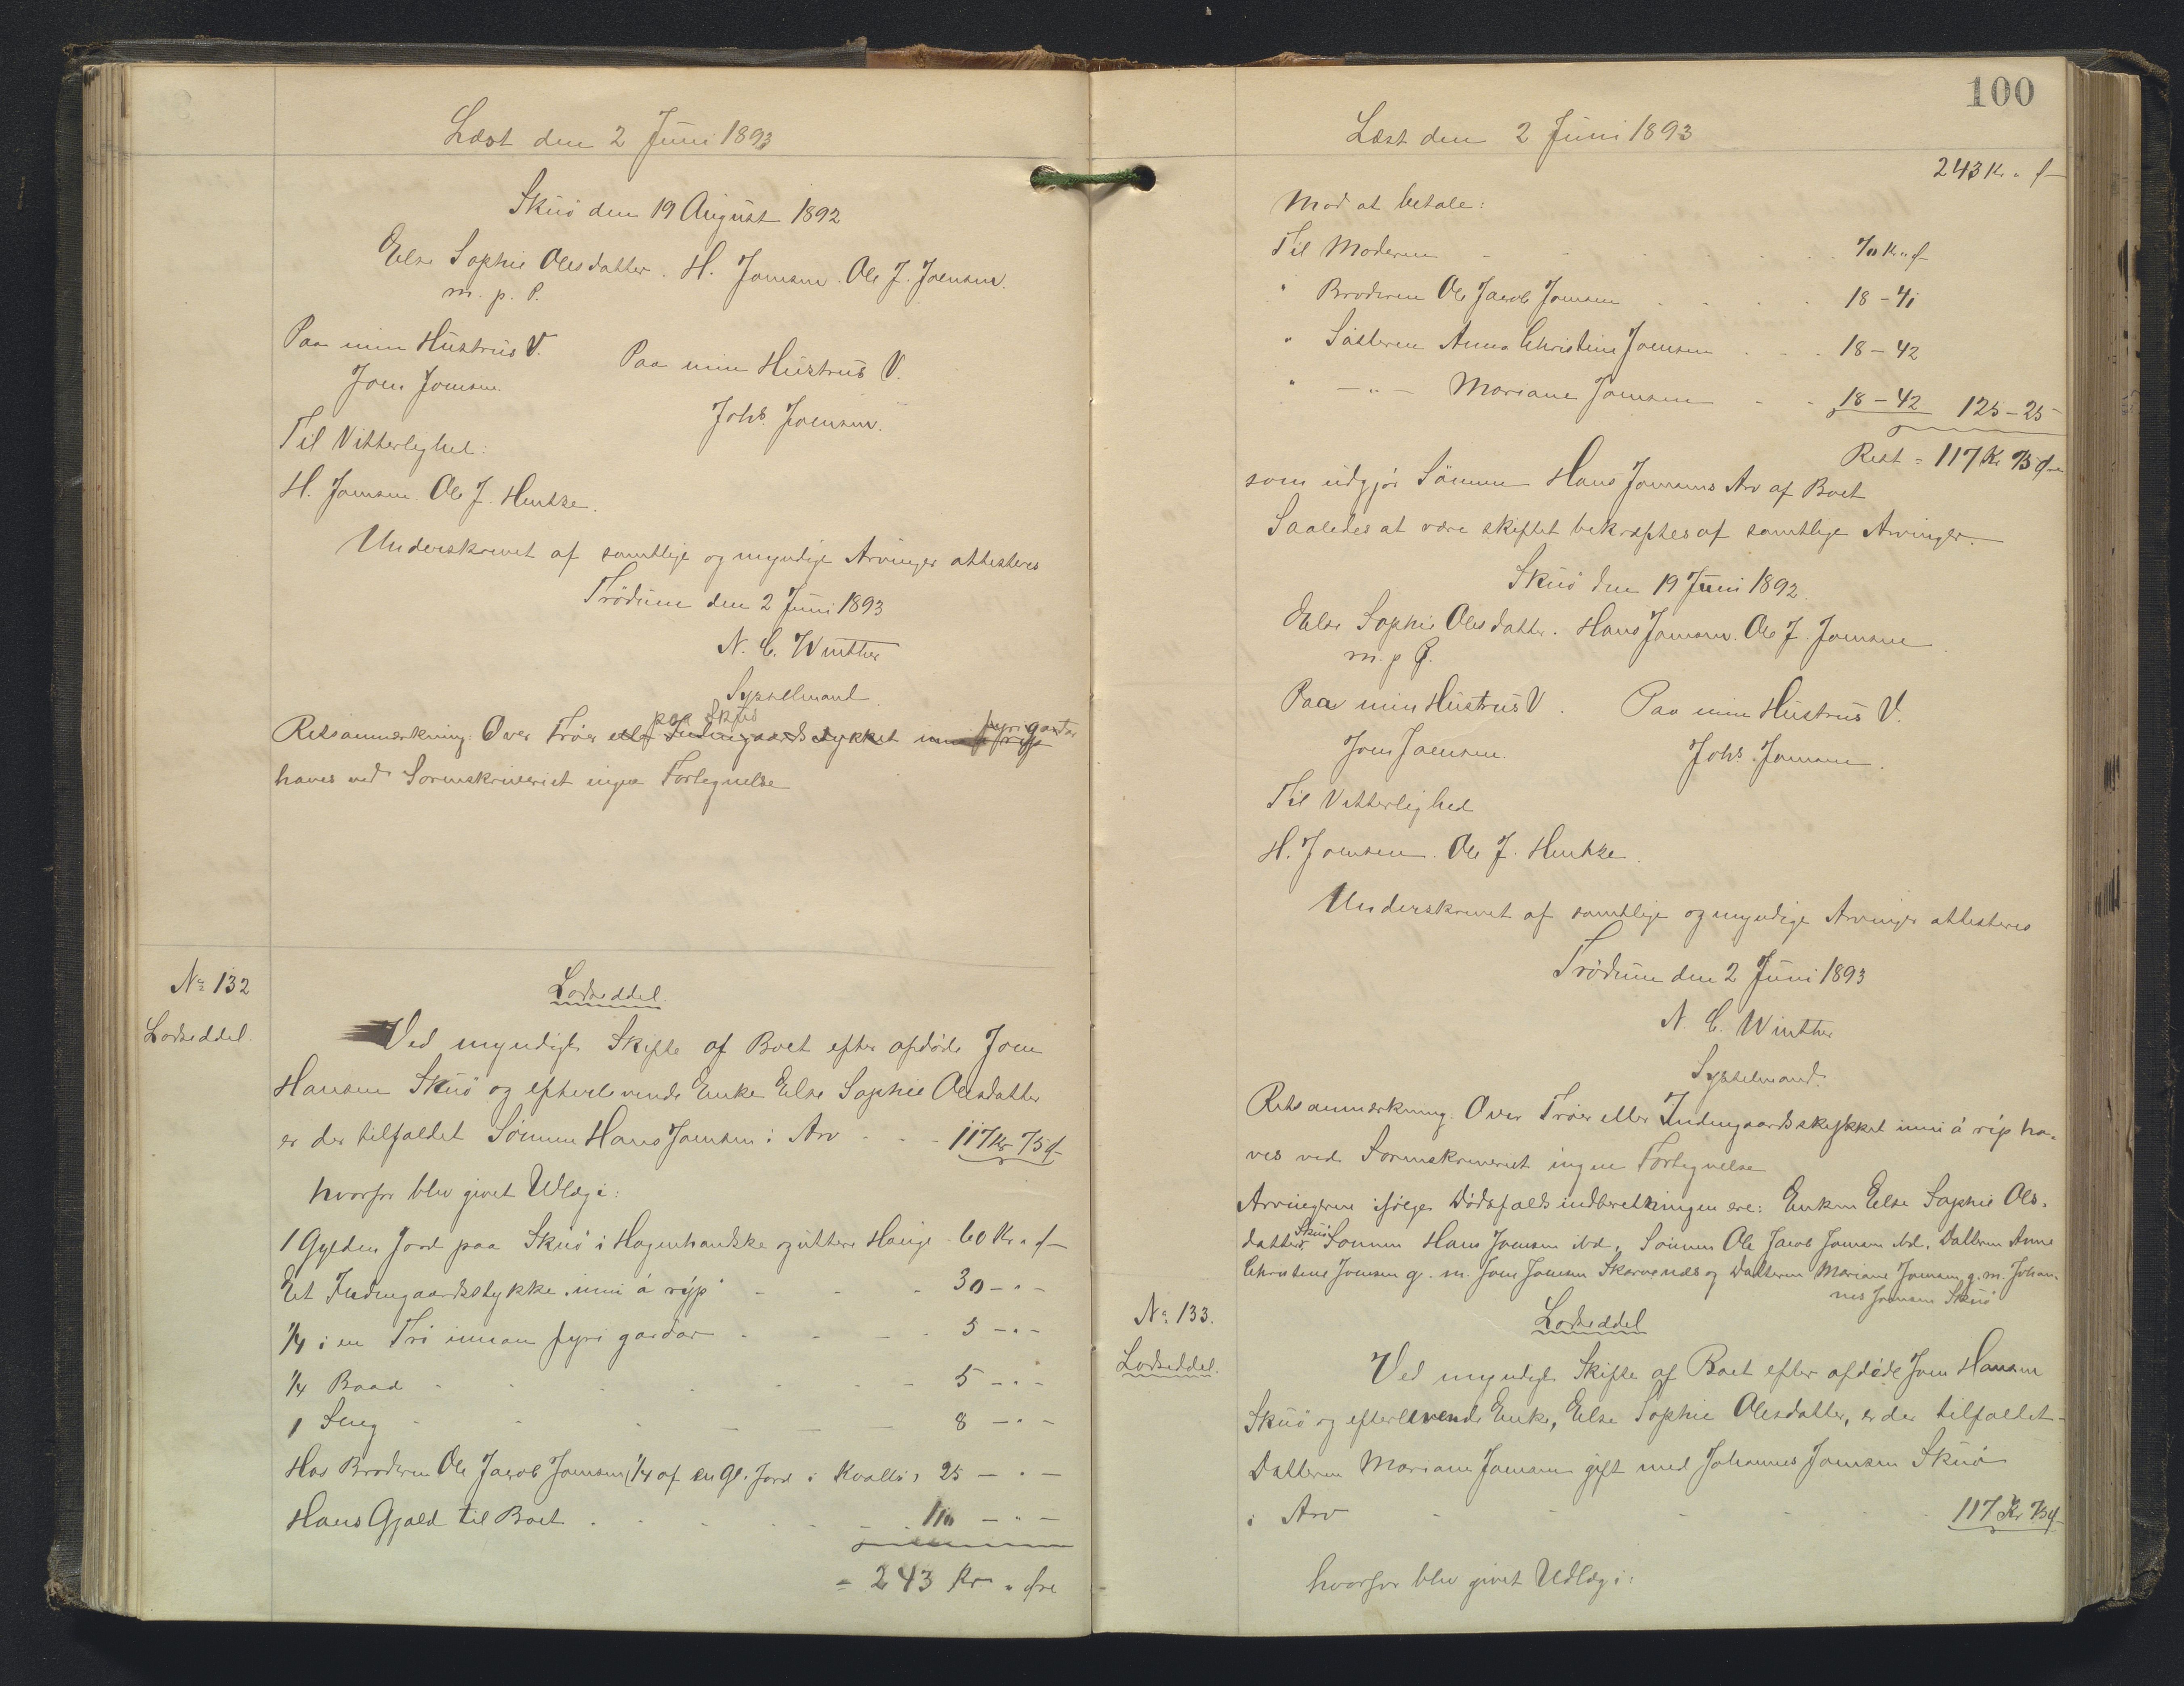 Læst den 2 Juni 1893
Skuö den 19 August 1892
Else Sophie Olesdatter. H. Joensen. Ole J. Joensen.
m. p. P.
Paa min Hustrus V.
Joen Joensen.
Paa min Hustrus V.
Johs. Joensen.
Til Vitterlighed:
H. Joensen. Ole J. Hentze.
Underskrevet af samtlige og myndige Arvinger attesteres
Trödum den 2 Juni 1893
N. C. Winther
Sysselmand.
paa Skuö fyri gardar
Retsanmærkning: Over Tröer eller Indengaardsstykket
haves ved Sorenskriveriet ingen Fortegnelse
No 132
Lodseddel.
Lodseddel.
Ved myndigt Skifte af Boet efter afdøde Joen
Hansen Skuö og efterlevende Enke Else Sophie Olesdatter
er der tilfaldet Sönnen Hans Joensen i Arv - - - 117 Kr 75 Ø
hvorfor blev givet Udlæg i:
1 Gylden Jord paa Skuö i Hogenhandske og uttere Hauge - 60 Kr. " Ø
Et Indengaardsstykke inni á ryp - - - 30 - " -
1/4 i en Trö innan fyri gardar - - - 5 - " -
1/4 Baad - - - 5 - " -
1 Seng - - - 8 - " -
Hos Broderen Ole Jacob Joensen (1/4 af en Gl. Jord i 25 - " -
Hans Gjæld til Boet - - - 110 - " -
= 243 Kr " Øre
100
Læst den 2 Juni 1893
243 Kr. " Ø
Mod at betale:
Til Moderen - - - 70 Kr. " Ø
" Broderen Ole Jacob Joensen - - - 18 - 41
" Sösteren Anna Christine Joensen - - - 18 - 42
" - " - Mariane Joensen - - 18 - 42 125 - 25
Rest = 117 Kr 75 Øre
som udgjör Sönnen Hans Joensens Arv af Boet
Saaledes at være skiftet bekræftes af samtlige Arvinger.
Skuö den 19 Juni 1892.
Else Sophie Olesdatter. Hans Joensen. Ole J. Joensen.
m. p. P.
Paa min Hustrus V.
Joen Joensen.
Paa min Hustrus V.
Johs. Joensen.
Til Vitterlighed
H. Joensen. Ole J. Hentze.
Underskrevet af samtlige og myndige Arvinger attesteres
Trödum den 2 Juni 1893
N. C. Winther
Sysselmand.
Retsanmærkning: Over Tröer eller Indengaardsstykket inni á ríp ha-
ves ved Sorenskriveriet ingen Fortegnelse
Arvingerne ifølge Dødsfaldsindberetningen ere: Enken Else Sophie Ols-
datter Skuö Sönnen Hans Joensen ibd., Sönnen Ole Jacob Joensen ibd. Datteren Anne
Christine Joensen g. m. Joen Joensen Skarvenæs og Datteren Mariane Joensen g. m. Johan-
nes Joensen Skuö
No 133.
Lodseddel.
Lodseddel
Ved myndigt Skifte af Boet efter afdøde Joen Hansen
Skuö og efterlevende Enke, Else Sophie Olesdatter, er der tilfaldet
Datteren Mariane Joensen gift med Johannes Joensen Skuö
i Arv - - - 117 Kr 75 Ø
hvorfor blev givet Udlæg i: